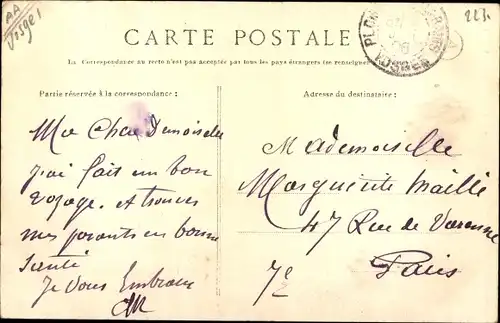 AA
V5981
223.
CARTE POSTALE
La Correspondance au recto n'est pas acceptée par tous les pays étrangers (se renseigner
Partie réservée à la correspondance :
Adresse du destinataire :
PLOMBIERES
VOSGES
Ma Chère Demoiselle
j'ai fait un bon
voyage. et trouver
mes parents en bonne
santé
Je vous Embrasse
Mademoiselle
Marguerite Maille
47 Rue de Varenne
Paris
7e